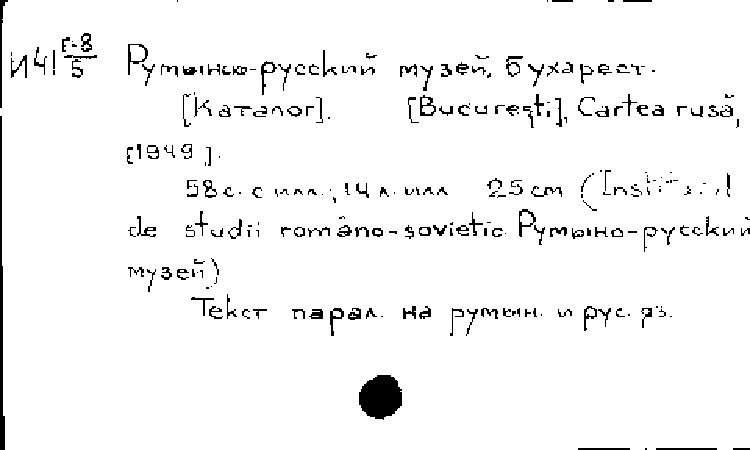 И41 Г-8/5 Румыно-русский музей, Бухарест.
[Каталог]. [Bucureşti], Cartea rusă,
[1949].
58 с. с илл.; 14 л. илл. 25 см (Institutul
de studii româno-sovietic. Румыно-русский
музей)
Текст парал. на румын. и рус. яз.